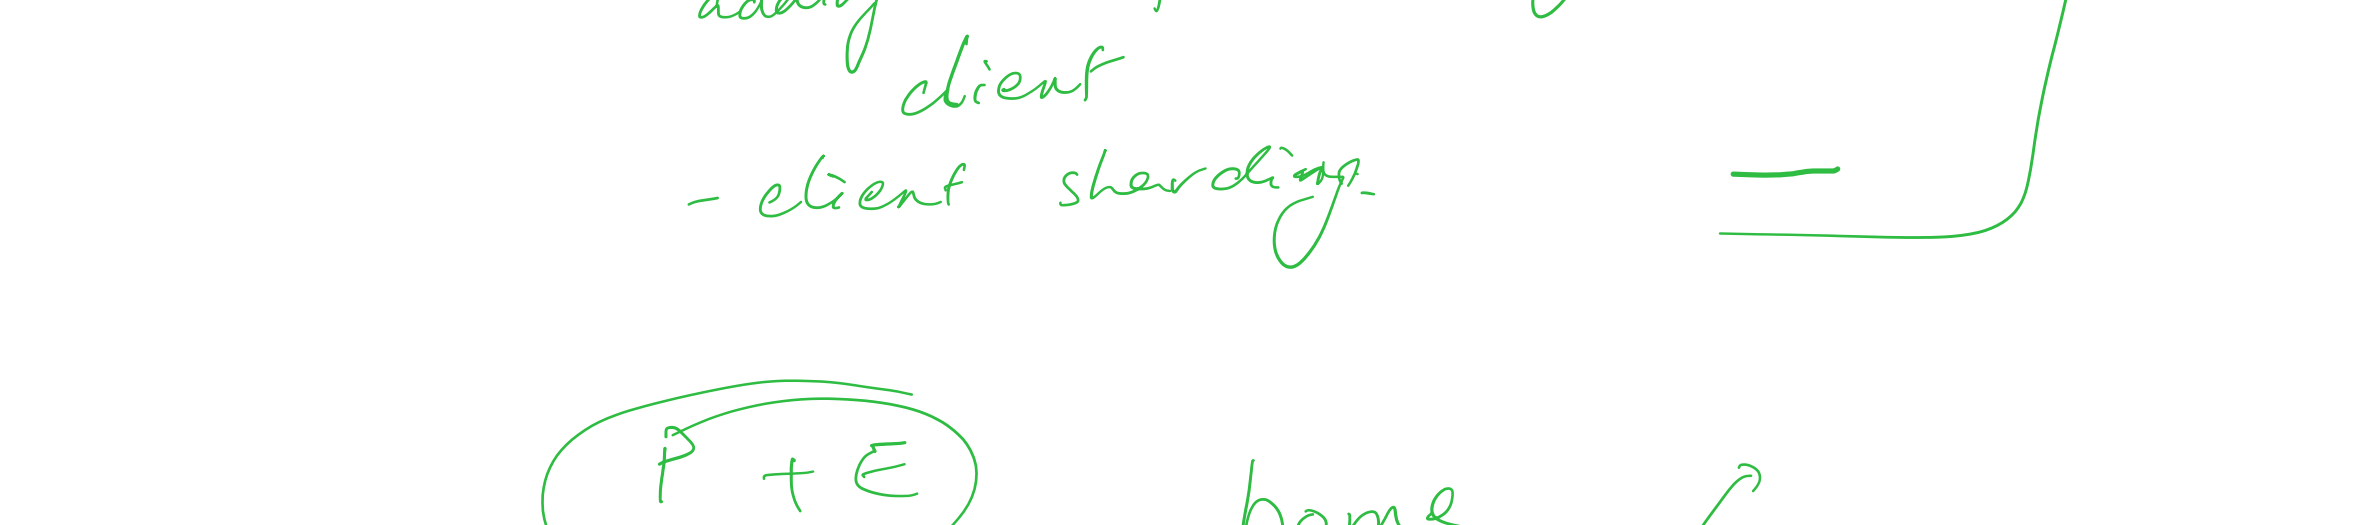 client
- client sharding
P + E
home